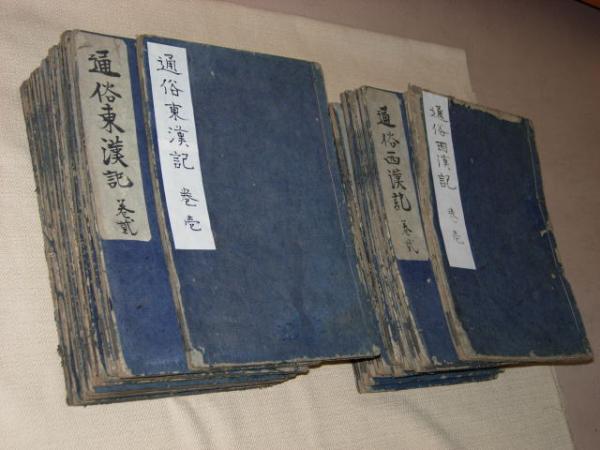 通俗東漢記 巻弐
通俗東漢記 巻壱
通俗西漢記 巻弐
通俗西漢記 巻壱